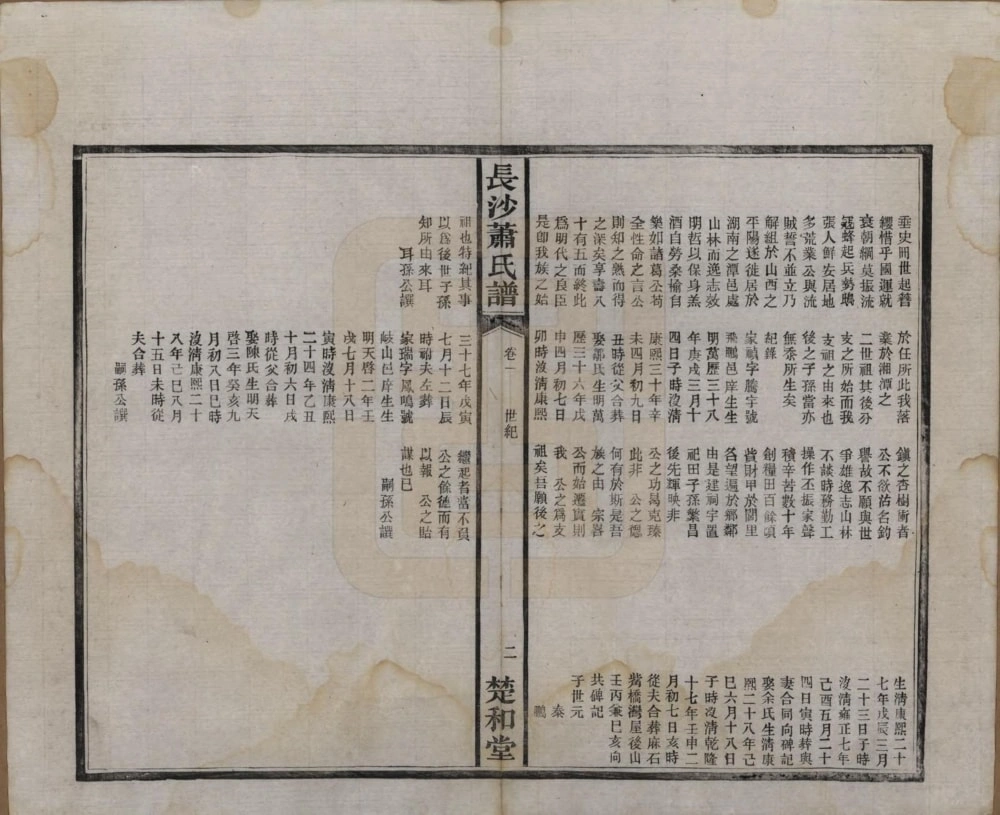 垂史冊世起簪
纓惜乎國運就
衰朝綱莫振流
寇蜂起兵勢騷
張人鮮安居地
多荒業公與流
賊誓不並立乃
解組於山西之
平陽遂徙居於
湖南之潭邑處
山林而逸志效
明哲以保身羔
酒自勞桑榆自
樂如諸葛公苟
全性命之言公
則知之熟而得
之深矣享壽八
十有五而終此
爲明代之良臣
是卽我族之始
於任所此我落
業於湘潭之
二世祖其後分
支之所始而我
支祖之由來也
後之子孫當亦
無忝所生矣
起鋒
家禎字騰宇號
飛鵬邑庠生生
明萬歷三十八
年庚戌三月十
四日子時沒清
康熙三十年辛
未四月初九日
丑時從父合葬
娶鄒氏生明萬
歷三十六年戊
申四月初七日
卯時沒清康熙
鎮之杏樹衖者
公不欲沽名釣
譽故不願與世
爭雄逸志山林
不談時務勤工
操作丕振家聲
積辛苦數十年
創糧田百餘頃
貲財甲於閭里
名望遍於鄉鄰
由是建祠宇置
祀田子孫繁昌
後先輝映非
公之功曷克臻
此非 公之德
何有於斯是吾
族之由 宗器
公而始遷實則
我 公之爲支
祖矣吾願後之
生清康熙二十
七年戊辰三月
二十三日子時
沒清雍正七年
己酉五月二十
四日寅時葬與
妻合同向碑記
娶余氏生清康
熙二十八年己
巳六月十八日
子時沒清乾隆
十七年壬申二
月初七日亥時
從夫合葬麻石
觜橋灣屋後山
壬丙兼巳亥向
共碑記
子世元
泰
鵬
長沙蕭氏譜
卷一
世紀
二
楚和堂
祖也特紀其事
以爲後世子孫
知所由來耳
耳孫公譔
三十七年戊寅
七月十二日辰
時祔夫左葬
家瑞字鳳鳴號
岐山邑庠生生
明天啓二年壬
戌七月十八日
寅時沒清康熙
二十四年乙丑
十月初六日戌
時從父合葬
娶陳氏生明天
啓三年癸亥九
月初八日巳時
沒清康熙二十
八年己巳八月
十五日未時從
夫合葬
嗣孫公譔
繼起者當不負
公之餘德而有
以報 公之貽
謀也已
嗣孫公譔